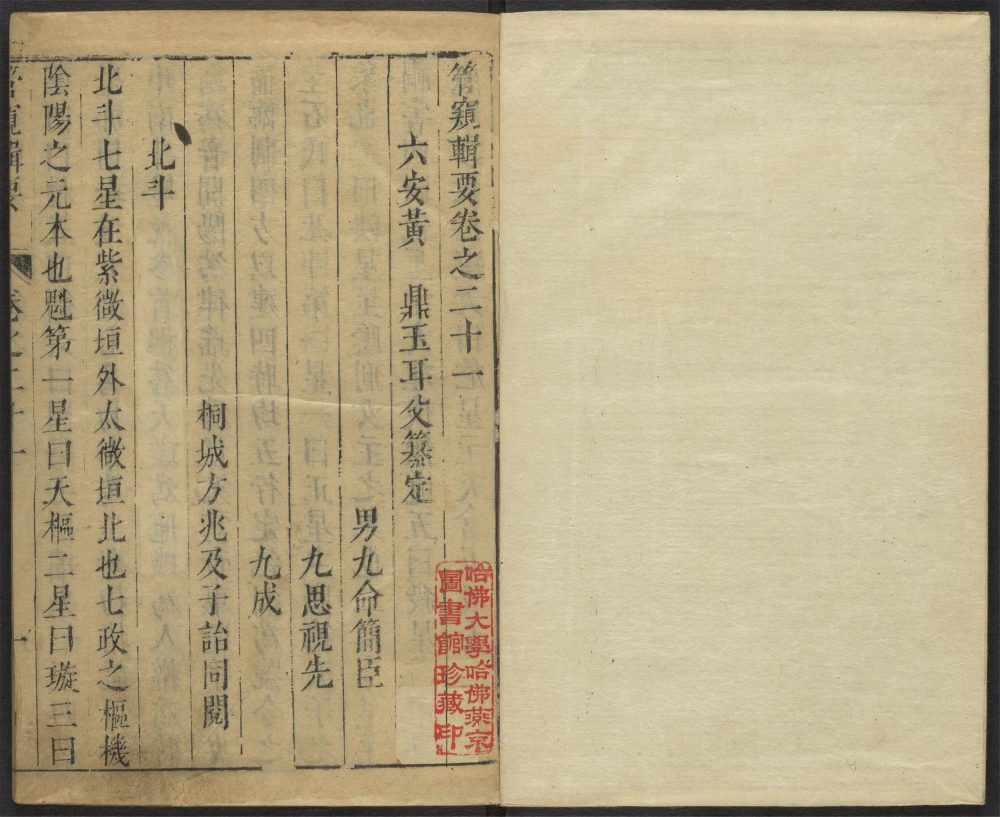 管窺輯要卷之二十一
六安黃 鼎玉耳父纂定
男九命簡臣
九思視先
九成
桐城方兆及子詒同閱
北斗
北斗七星在紫微垣外太微垣北也七政之樞機
陰陽之元本也魁第一星曰天樞二星曰璇三曰
管窺輯要
卷之二十一
一
哈佛大學哈佛燕京
圖書館珍藏印